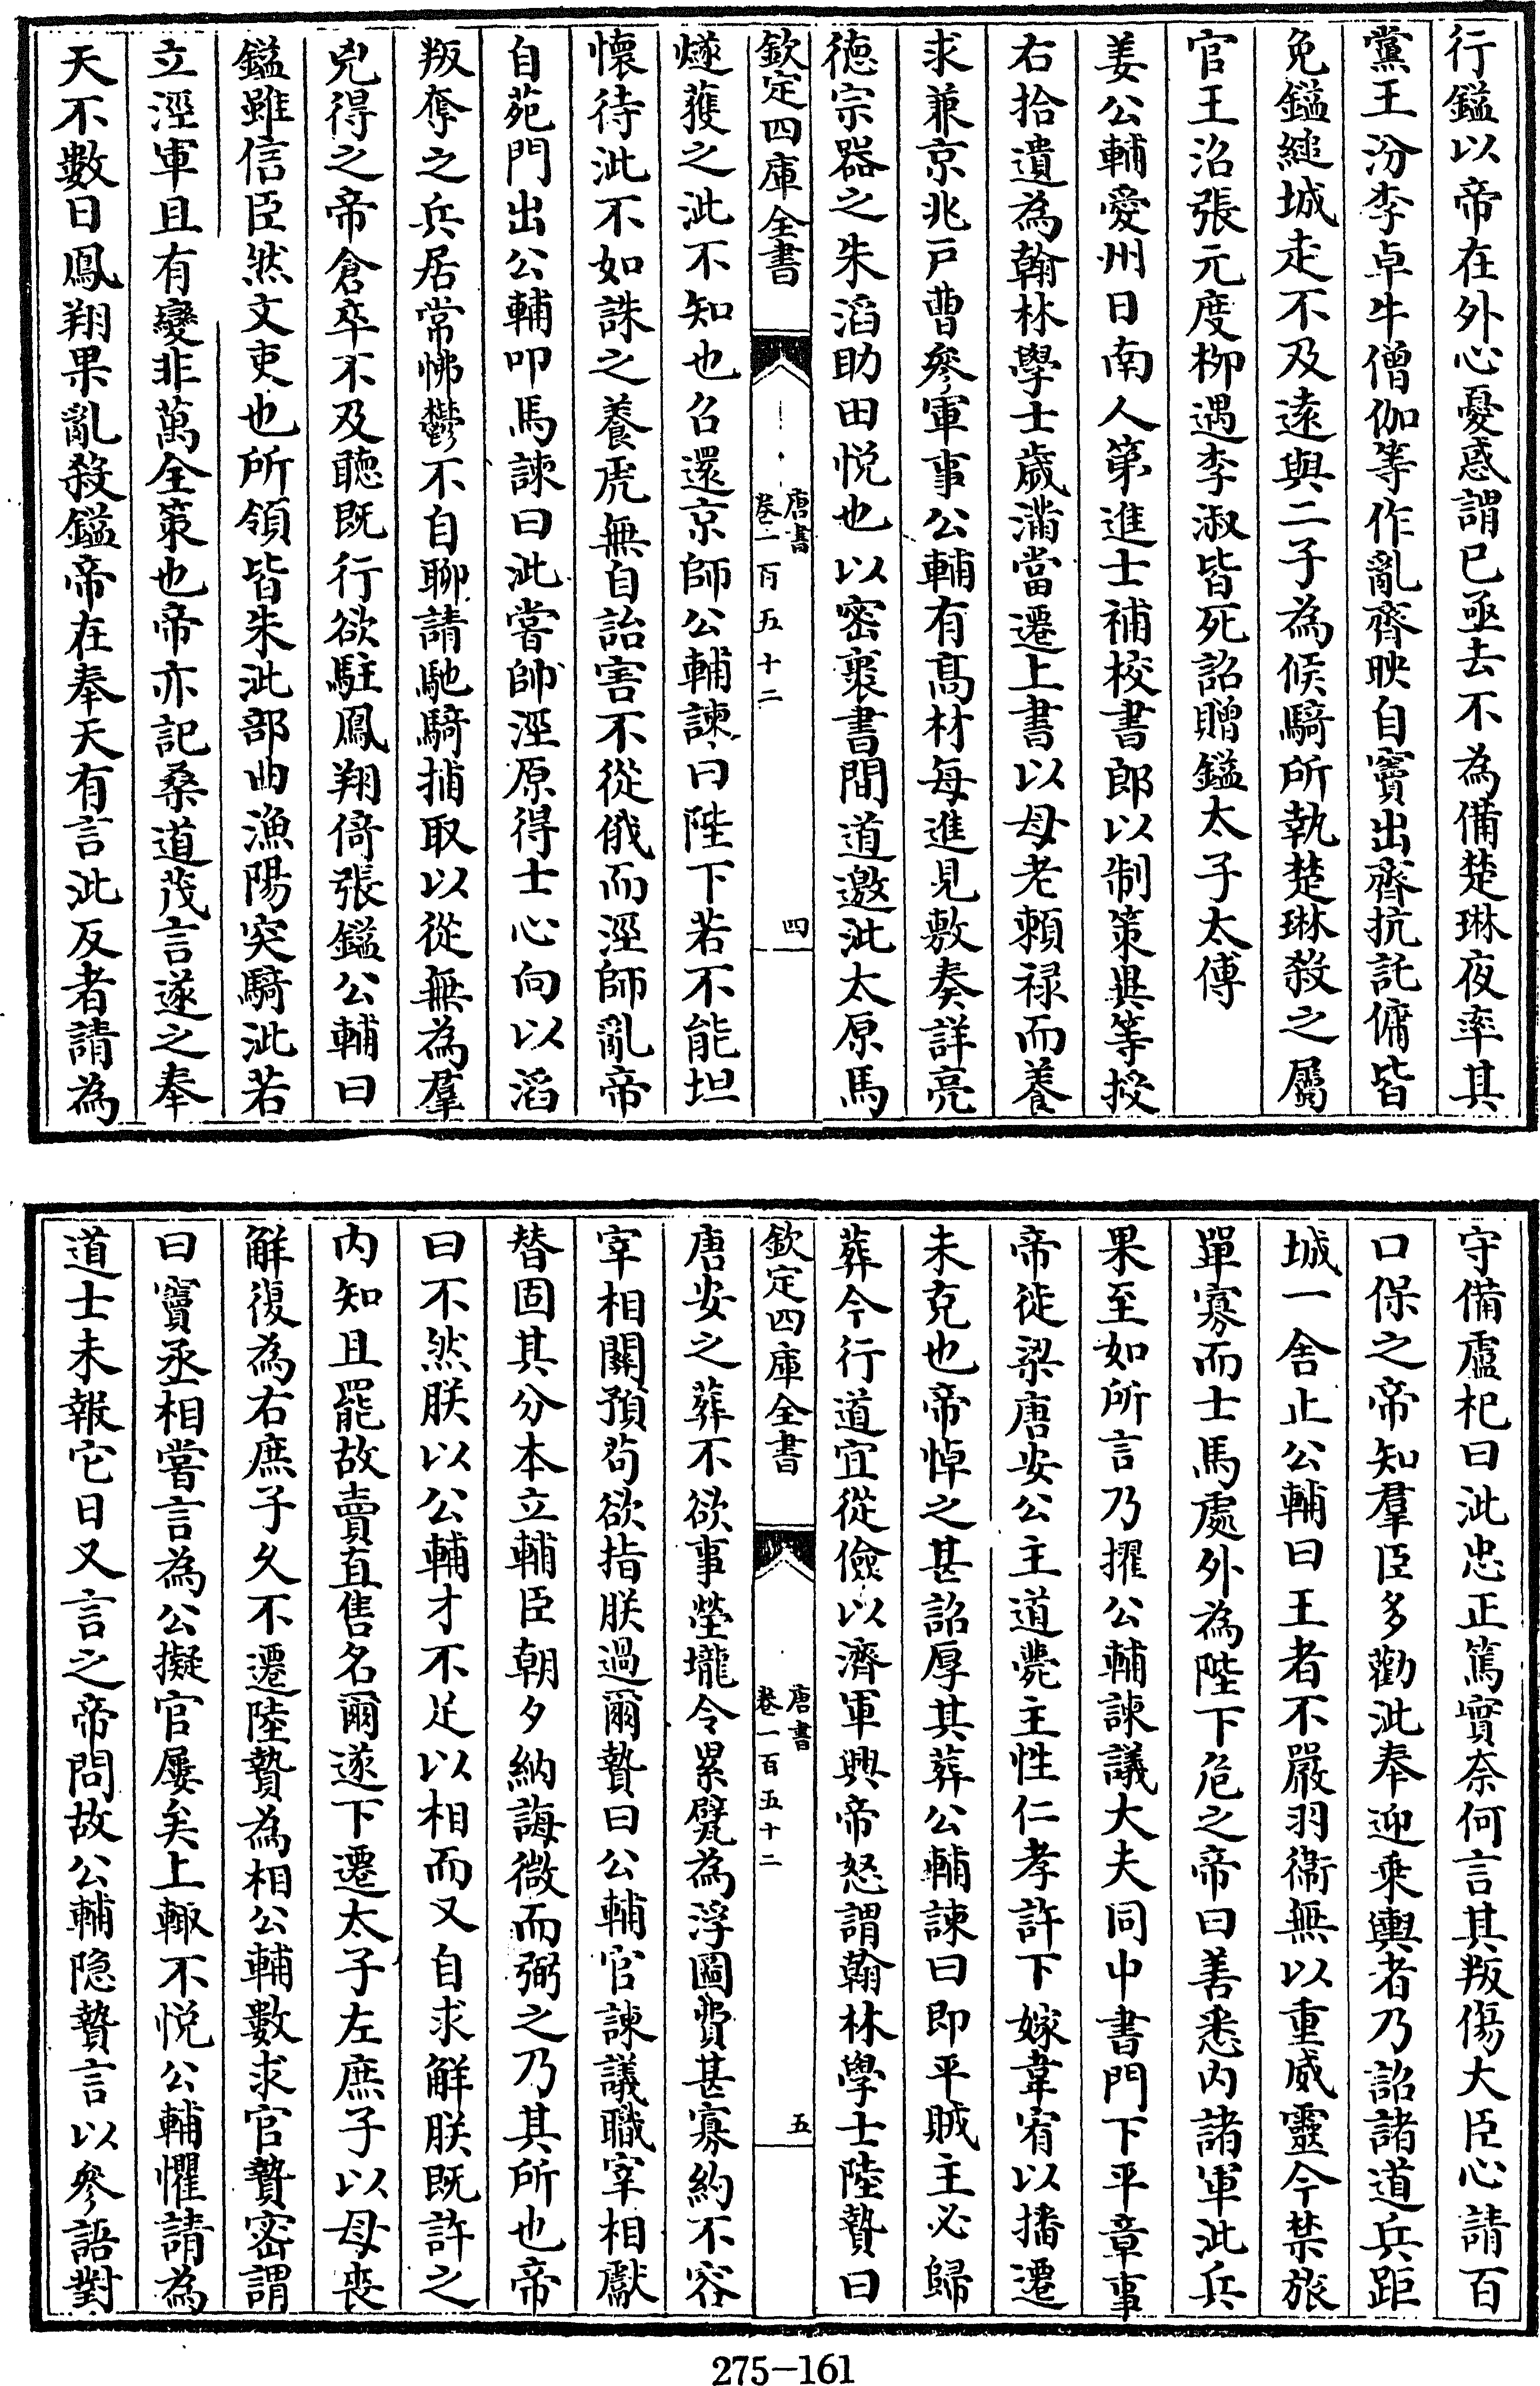 行鎰以帝在外心憂惑謂已亟去不為備楚琳夜率其
黨王汾李卓牛僧伽等作亂齊映自竇出齊抗託傭皆
免鎰縋城走不及遠與二子為候騎所執楚琳殺之屬
官王沼張元度栁遇李溆皆死詔贈鎰太子太傅
姜公輔愛州日南人第進士補校書郎以制策異等授
右拾遺為翰林學士歲滿當遷上書以母老賴禄而養
求兼京兆戸曹參軍事公輔有髙材每進見敷奏詳亮
徳宗器之朱滔助田悦也以密裹書間道邀泚太原馬
欽定四庫全書
唐書
卷一百五十二
四
燧獲之泚不知也召還京師公輔諫曰陛下若不能坦
懷待泚不如誅之養虎無自詒害不從俄而涇師亂帝
自苑門出公輔叩馬諫曰泚嘗帥涇原得士心向以滔
叛奪之兵居常怫鬱不自聊請馳騎捕取以從無為羣
兇得之帝倉卒不及聽既行欲駐鳳翔倚張鎰公輔曰
鎰雖信臣然文吏也所領皆朱泚部曲漁陽突騎泚若
立涇軍且有變非萬全策也帝亦記桑道茂言遂之奉
天不數日鳳翔果亂殺鎰帝在奉天有言泚反者請為
守備盧杞曰泚忠正篤實奈何言其叛傷大臣心請百
口保之帝知羣臣多勸泚奉迎乗輿者乃詔諸道兵距
城一舎止公輔曰王者不嚴羽衞無以重威靈今禁旅
單寡而士馬處外為陛下危之帝曰善悉内諸軍泚兵
果至如所言乃擢公輔諫議大夫同中書門下平章事
帝徙梁唐安公主道薨主性仁孝許下嫁韋宥以播遷
未克也帝悼之甚詔厚其葬公輔諫曰即平賊主必歸
葬今行道宜從儉以濟軍興帝怒謂翰林學士陸贄曰
欽定四庫全書
唐書
卷一百五十二
五
唐安之葬不欲事塋壠令累甓為浮圖費甚寡約不容
宰相關預苟欲指朕過爾贄曰公輔官諫議職宰相獻
替固其分本立輔臣朝夕納誨微而弼之乃其所也帝
曰不然朕以公輔才不足以相而又自求解朕既許之
内知且罷故賣直售名爾遂下遷太子左庶子以母喪
解復為右庶子久不遷陸贄為相公輔數求官贄密謂
曰竇丞相嘗言為公擬官屢矣上輙不悦公輔懼請為
道士未報它日又言之帝問故公輔隐贄言以參語對
275-161